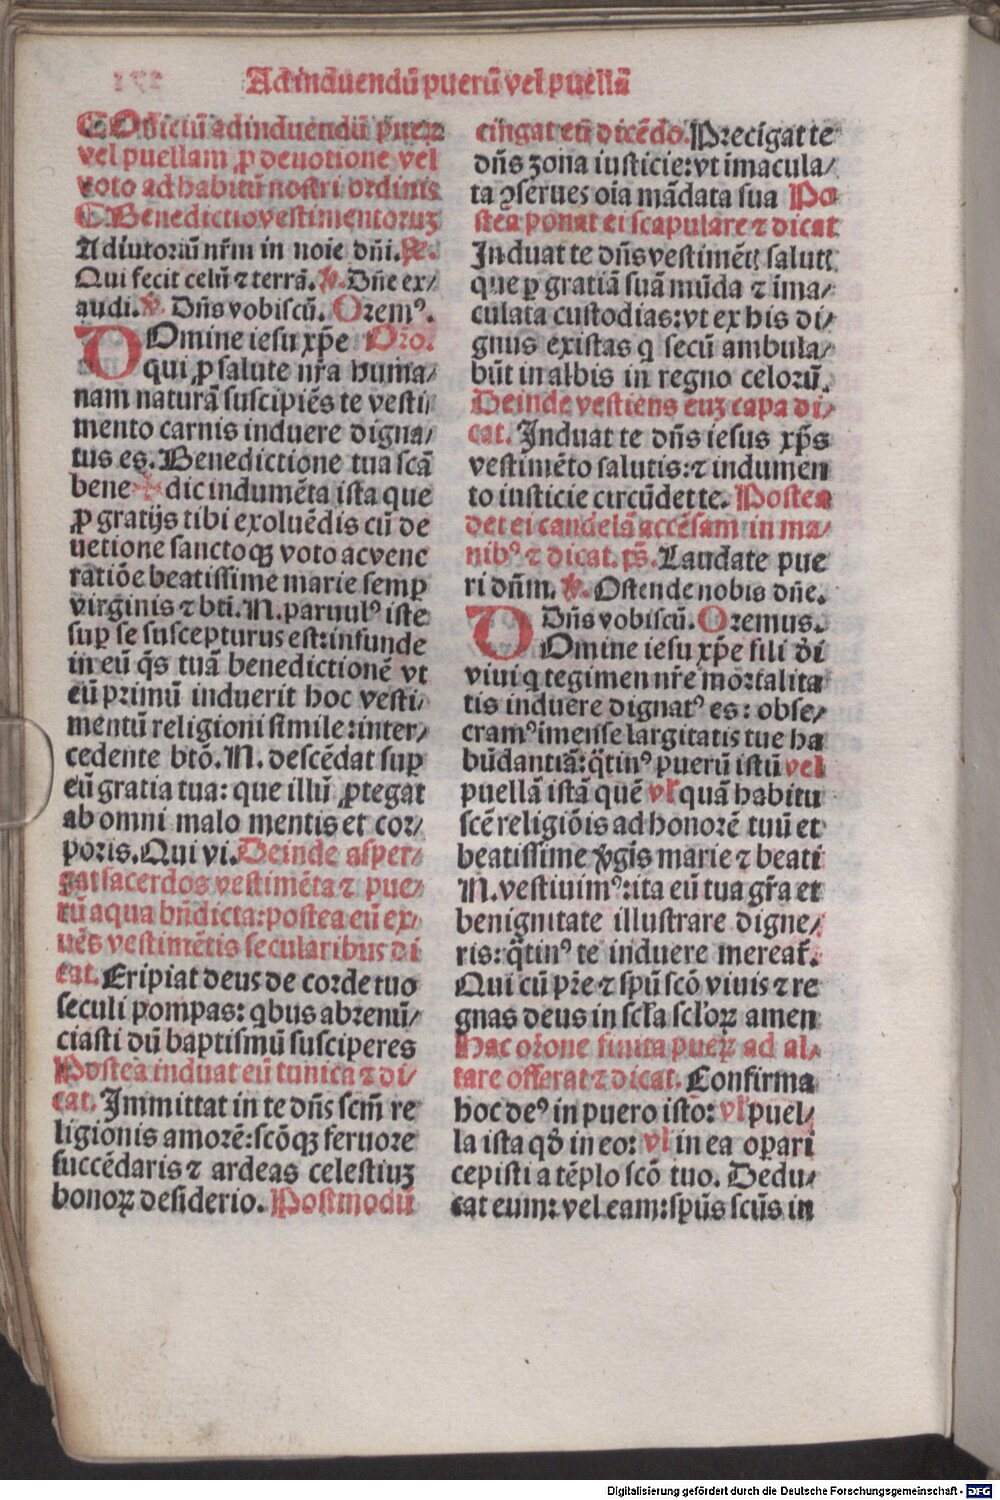 Ad induendū puerū vel puellā
Officiū ad induendū pueꝝ
vel puellam ꝓ deuotione vel
voto ad habitū nostri ordinis
Benedictio vestimentoruꝫ
Adiutoriū nr̄m in noie dn̄i. ℟.
Qui fecit celū ⁊ terrā. ℣. Dn̄e ex/
audi. ℣. Dn̄s vobiscū. Oremꝰ.
DOmine iesu xp̄e Oro.
qui ꝓ salute nr̄a huma/
nam naturā suscipiēs te vesti
mento carnis induere digna/
tus es. Benedictione tua scā
bene ✠ dic indumēta ista que
ꝓ gratijs tibi exoluēdis cū de
uetione sanctoqꝫ voto ac vene
ratiōe beatissime marie semꝑ
virginis ⁊ bti. N. paruulꝰ iste
suꝑ se suscepturus est: infunde
in eū q̄s tuā benedictionē vt
eū primū induerit hoc vesti/
mentū religioni simile: inter/
cedente btō. N. descēdat suꝑ
eū gratia tua: que illū ꝓtegat
ab omni malo mentis et cor/
poris. Qui vi. Deinde asper/
gat sacerdos vestimēta ⁊ pue/
rū aqua bn̄dicta: postea eū ex/
uēs vestimētis secularibus di
cat. Eripiat deus de corde tuo
seculi pompas: qbus abrenū/
ciasti dū baptismū susciperes
Postea induat eū tunica ⁊ di/
cat. Immittat in te dn̄s scm̄ re
ligionis amorē: scōqꝫ feruore
succēdaris ⁊ ardeas celestiuꝫ
bonoꝝ desiderio. Postmodū
cingat eū dicēdo. Precigat te
dn̄s zona iusticie: vt imacula/
ta ꝯserues oia mādata sua Po
stea ponat ei scapulare ⁊ dicat
Induat te dn̄s vestimētꝭ salutꝭ
que ꝑ gratiā suā mūda ⁊ ima/
culata custodias: vt ex his di/
gnus existas q secū ambula/
būt in albis in regno celorū.
Deinde vestiens euꝫ capa di/
cat. Induat te dn̄s iesus xp̄s
vestimēto salutis: ⁊ indumen
to iusticie circūdet te. Postea
det ei candelā accēsam in ma/
nibꝰ ⁊ dicat. ps̄. Laudate pue
ri dn̄m. ℣. Ostende nobis dn̄e.
Dn̄s vobiscū. Oremus.
DOmine iesu xp̄e fili dei
viui q tegimen nr̄e mortalita
tis induere dignatꝰ es: obse/
cramꝰ imense largitatis tue ha
būdantiā: q̄tinꝰ puerū istū vel
puellā istā quē vl̄ quā habitu
scē religiōis ad honorē tuū et
beatissime v̓gīs marie ⁊ beati
N. vestiuimꝰ: ita eū tua gr̄a et
benignitate illustrare digne/
ris: q̄tinꝰ te induere mereat̄.
Qui cū pr̄e ⁊ spū scō viuis ⁊ re
gnas deus in scl̄a scl̓oꝝ amen
Hac or̄one finita pueꝝ ad al/
tare offerat ⁊ dicat. Confirma
hoc deꝰ in puero isto: vl̄ puel/
la ista qd̓ in eo: vl̄ in ea oꝑari
cepisti a tēplo scō tuo. Dedu/
cat eum: vel eam: spūs scūs in
Digitalisierung gefördert durch die Deutsche Forschungsgemeinschaft - DFG